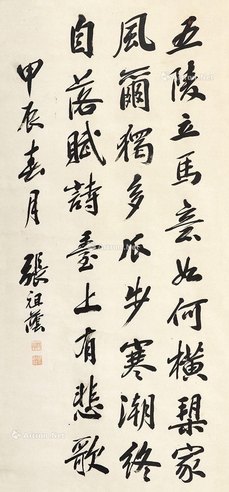 五陵立馬意如何橫槊家
風爾獨多瓜步寒潮終
自落賦詩臺上有悲歌
甲辰春月 張祖蔭